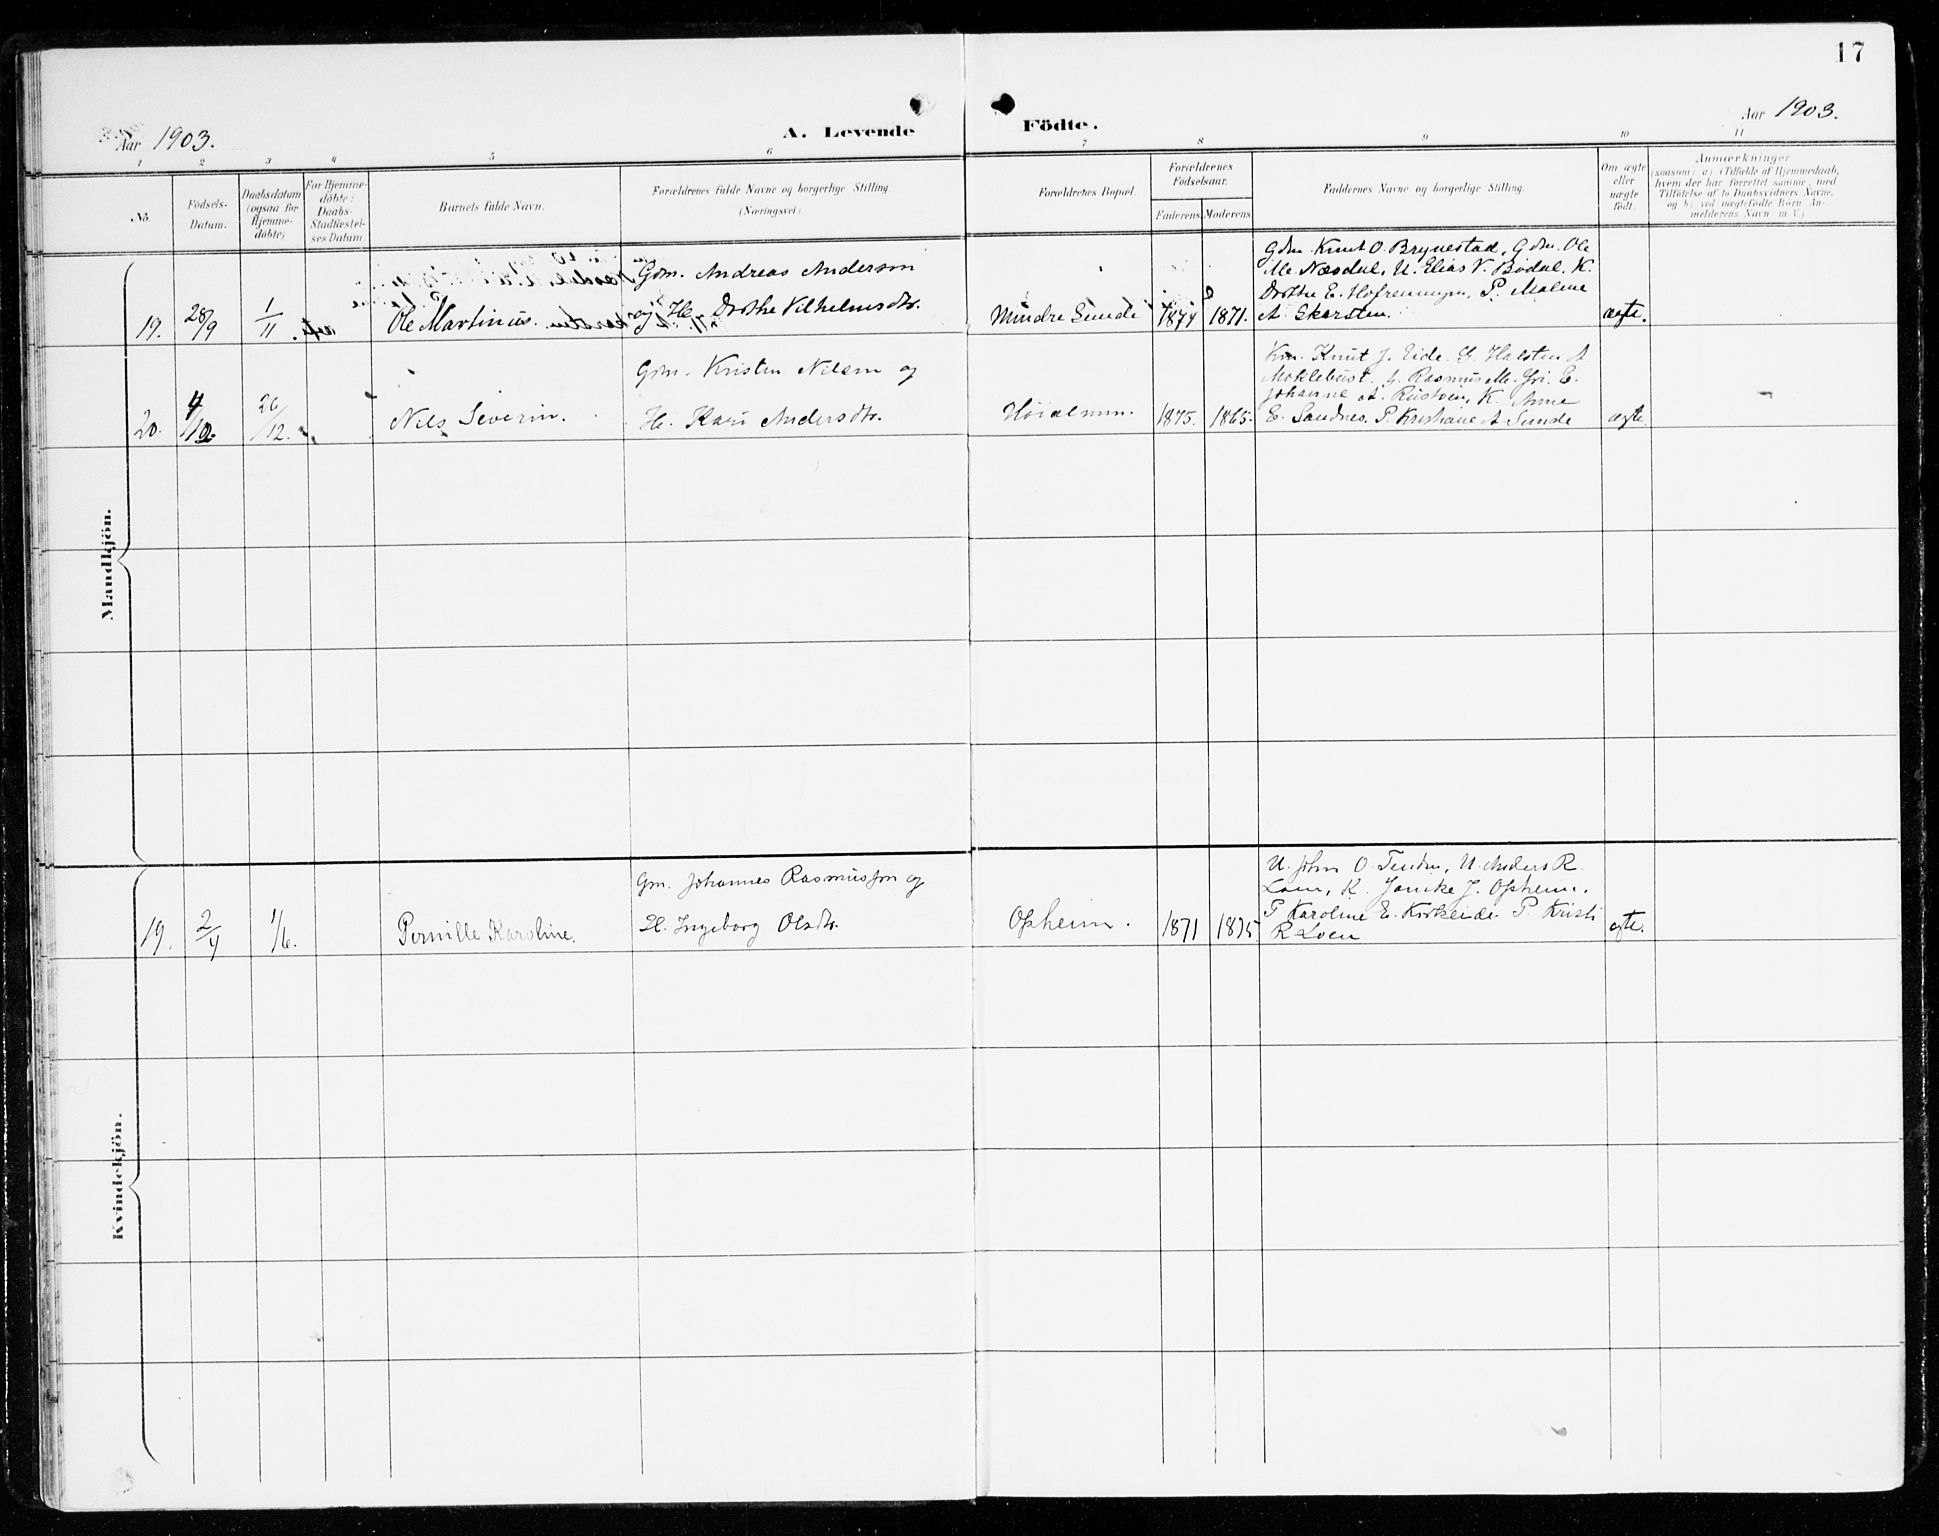 17
Aar 1903.
A. Levende Födte.
Aar 1903.
1 2 3 4 5 6 7 8 9 10 11
No.
Födsels-
Datum.
Daabsdatum
(ogsaa for
Hjemme-
döbte)
For Hjemme-
döbte:
Daabs-
Stadfæstel-
ses Datum.
Barnets fulde Navn.
Forældrenes fulde Navne og borgerlige Stilling
(Næringsvei)
Forældrenes Bopæl.
Forældrenes
Födselsaar.
Faderens Moderens
Faddernes Navne og borgerlige Stilling.
Om ægte
eller
uægte
födt.
Anmærkninger
(saasom: a) i Tilfælde af Hjemmedaab,
hvem der har forrettet samme, med
Tilföielse af to Daabsvidners Navne,
og b) ved uægtefödte Börn An-
melderens Navn m. V.)
Mandkjön.
19.
28/9
1/11.
Ole Martinus.
Gdm. Andreas Andersen
og H. Dorthe Vilhelmsdtr.
Mindre Sunde
1871.
Gdm. Knut O. Brynestad, Gdm. Ole
M. Næsdal, U. Elias V. Bødal, K.
Dorthe E. Hofrenningen, P. Malene
A. Skarsten.
ægte.
20.
4/10
26/12.
Nils Severin.
Gdm. Kristen Nilsen og
H. Kari Andersdtr.
Høialmen.
1875. 1865.
Knut J. Eide. G. Halsten A
Moklebust. Rasmus M. E.
Johanne A. Rustøen, K. Anne
E. Sandnes. P. Kristiane A Sunde
ægte
Kvindekjön.
19.
2/4
1/6.
Pernille Karoline.
Gm. Johannes Rasmussen og
H. Ingeborg Olsdtr.
Opheim.
1871 1875
U. John O. Tenden, U. Anders R.
Loen, K. Jonike J. Opheim,
P Karoline E. Korkeide. P. Kristi
R Loen
ægte.